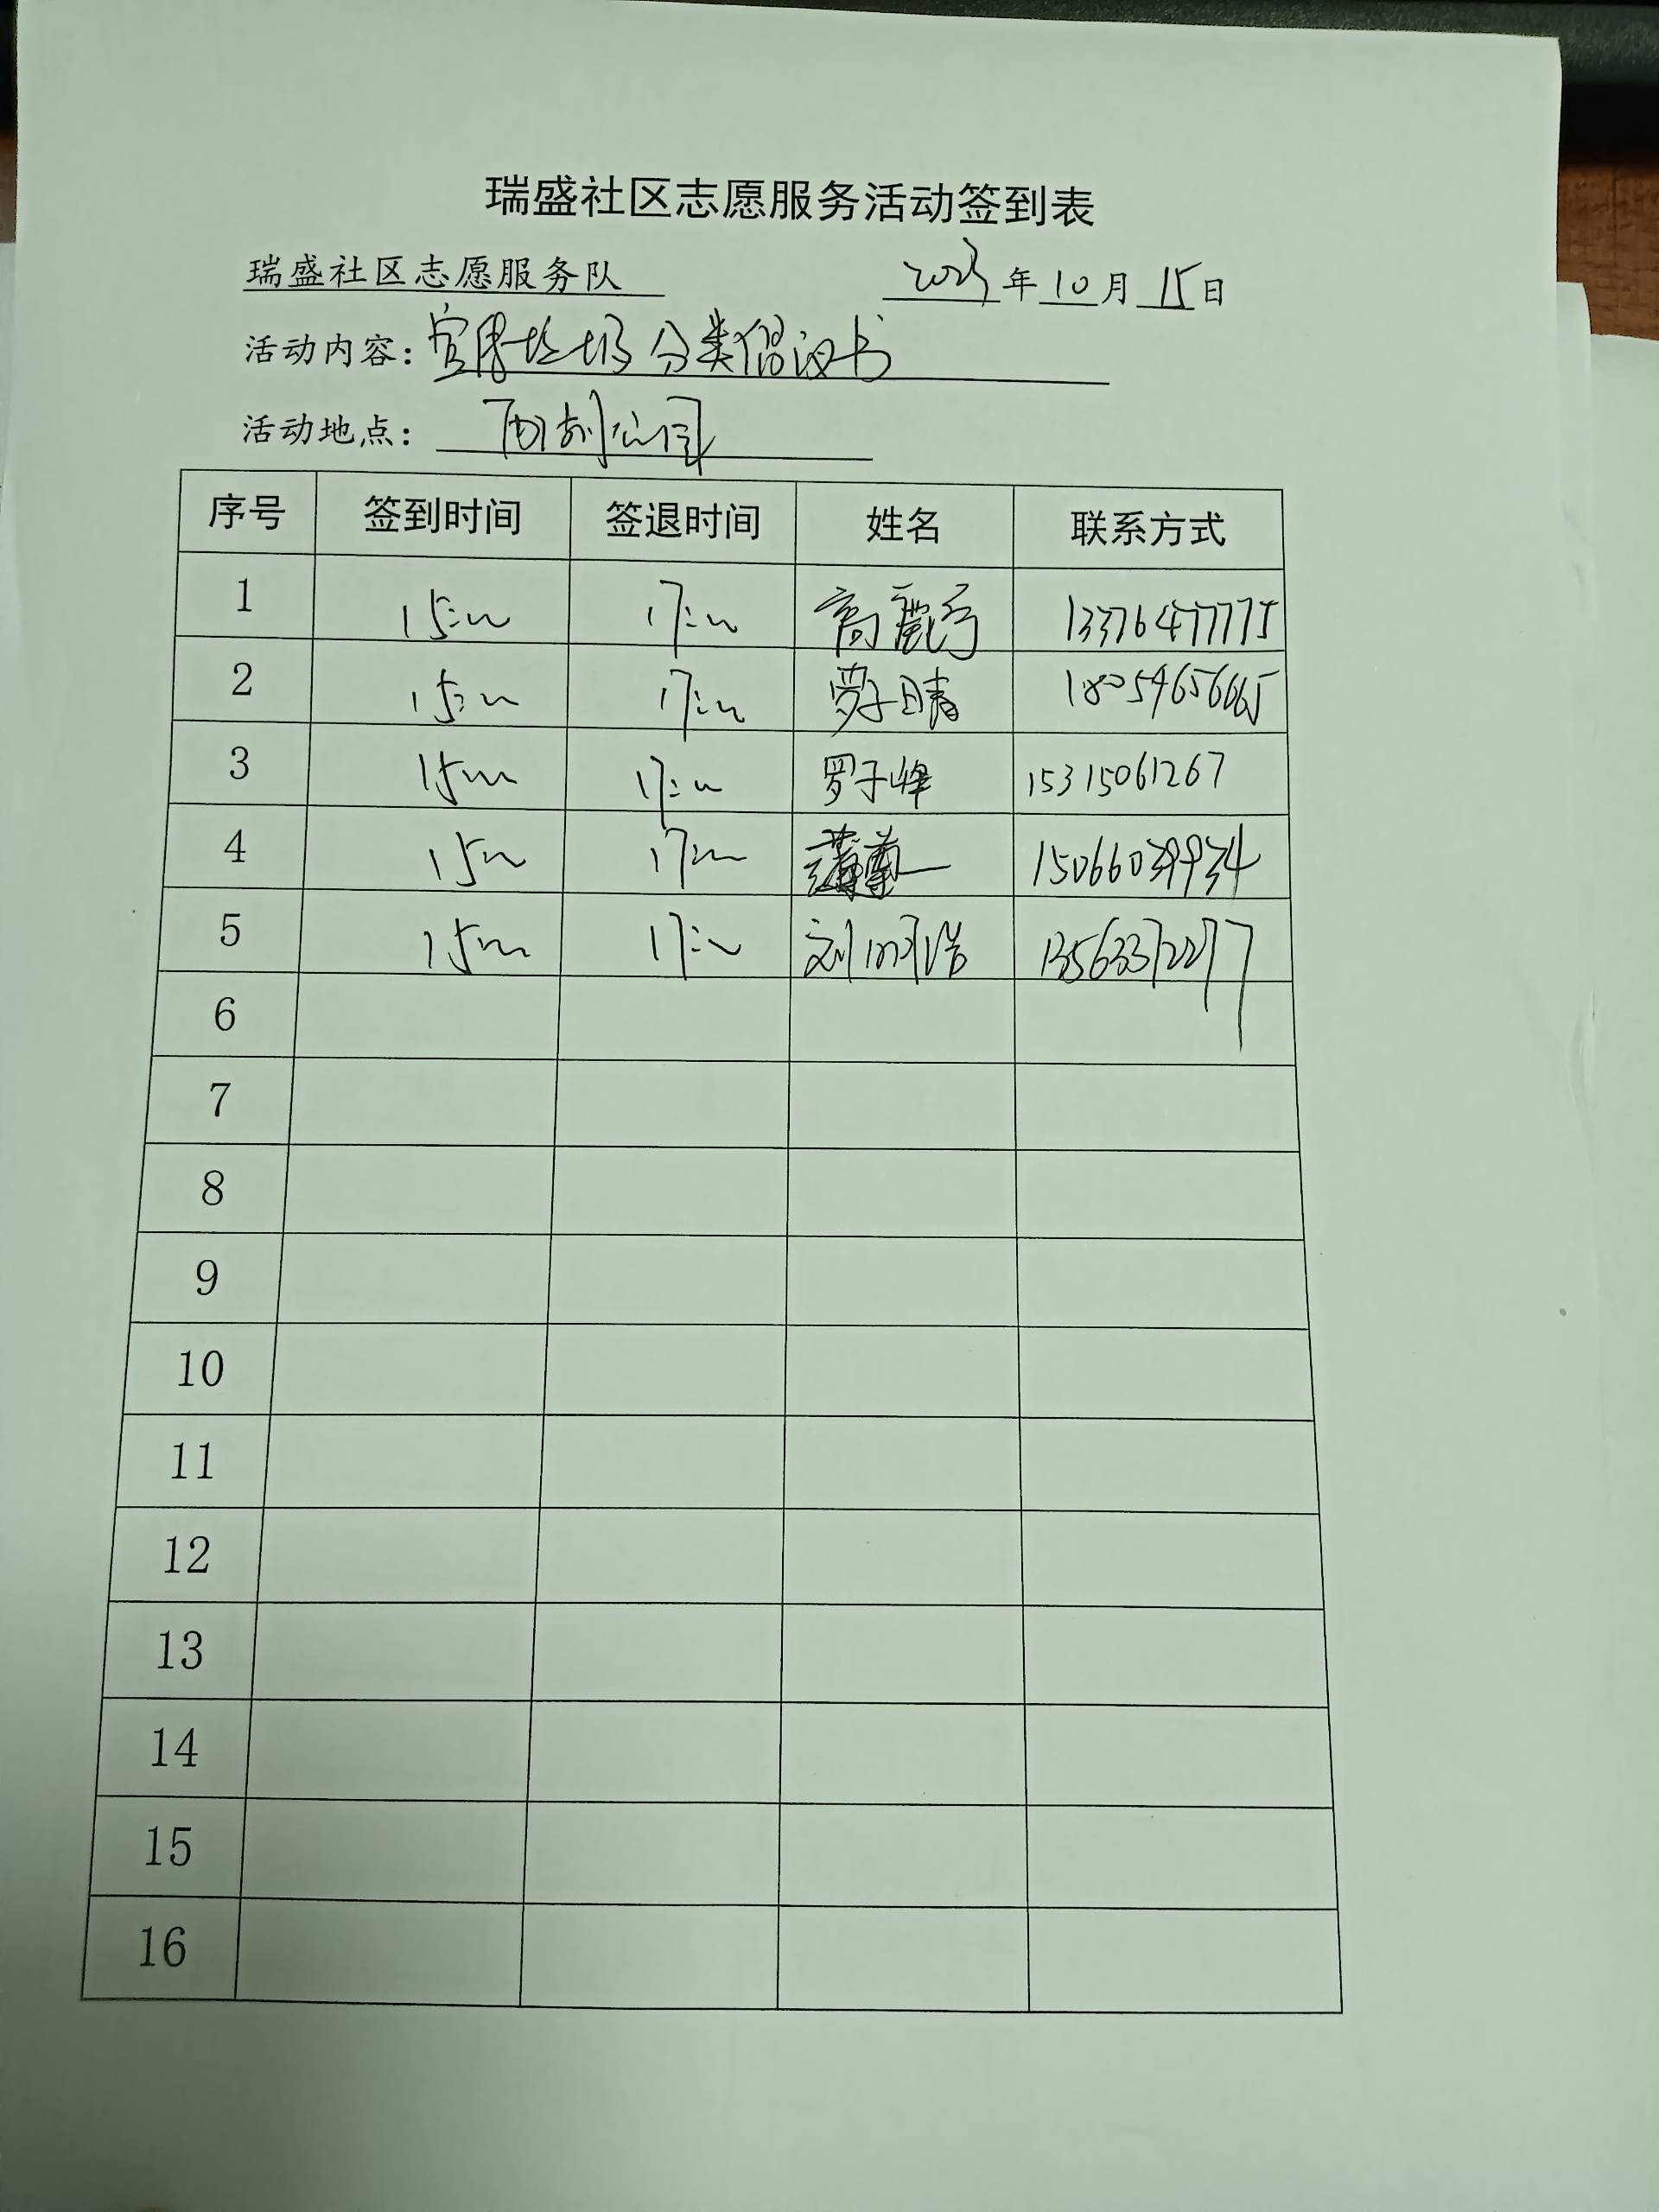 瑞盛社区志愿服务活动签到表
瑞盛社区志愿服务队 2023年10月15日
活动内容：宣传垃圾分类倡议书
活动地点：公司
序号 签到时间 签退时间 姓名 联系方式
1 15:00 17:00 高 13376477775
2 15:00 17:00 罗子晴 18054656665
3 15:00 17:00 罗子峰 15315061267
4 15:00 17:00 一 15066039934
5 15:00 17:00 刘明浩 13563372277
6
7
8
9
10
11
12
13
14
15
16